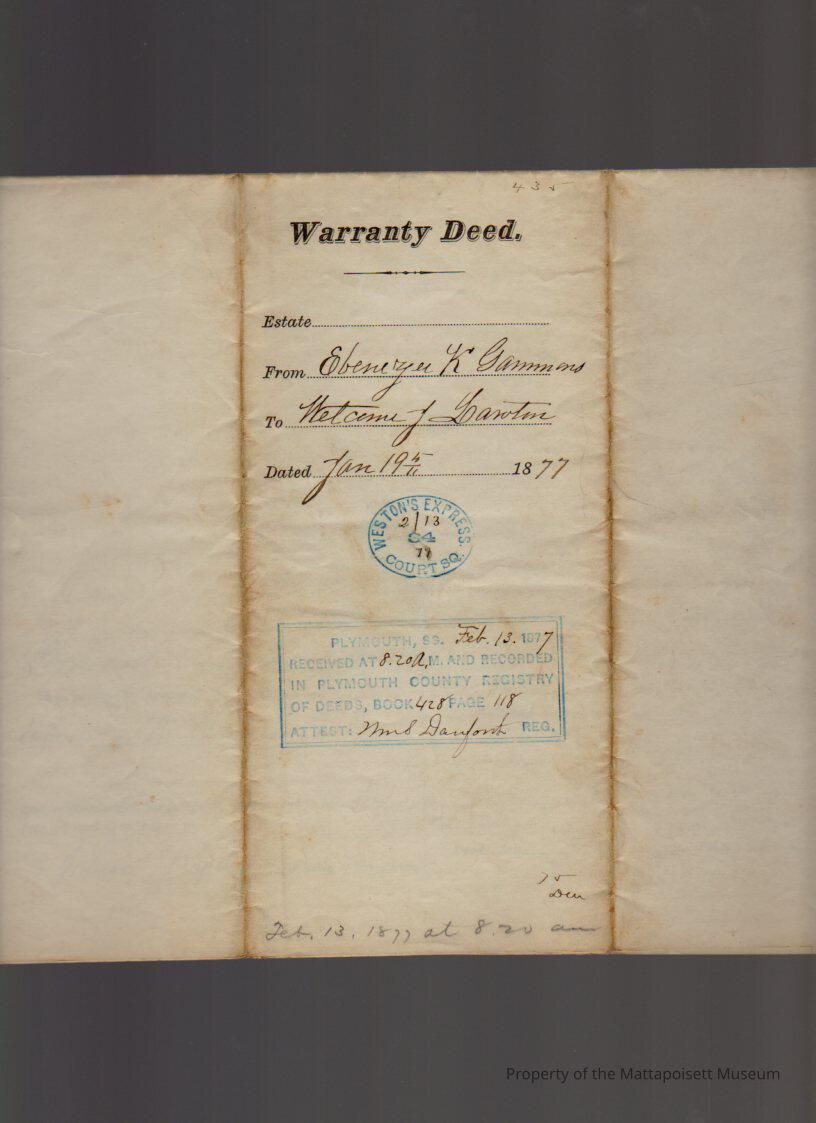 435
Warranty Deed.
Estate
From Ebenezer K Gammons
To Welcome J Lawton
Dated Jan 19th 1877
WESTON'S EXPRESS.
2/13
34
77
COURT SQ.
PLYMOUTH, SS. Feb. 13. 1877
RECEIVED AT 8.20 A,M. AND RECORDED
IN PLYMOUTH COUNTY REGISTRY
OF DEEDS, BOOK 428 PAGE 118
ATTEST: Wm S Danforth REG.
75
Feb. 13. 1877 at 8.20 am
Property of the Mattapoisett Museum